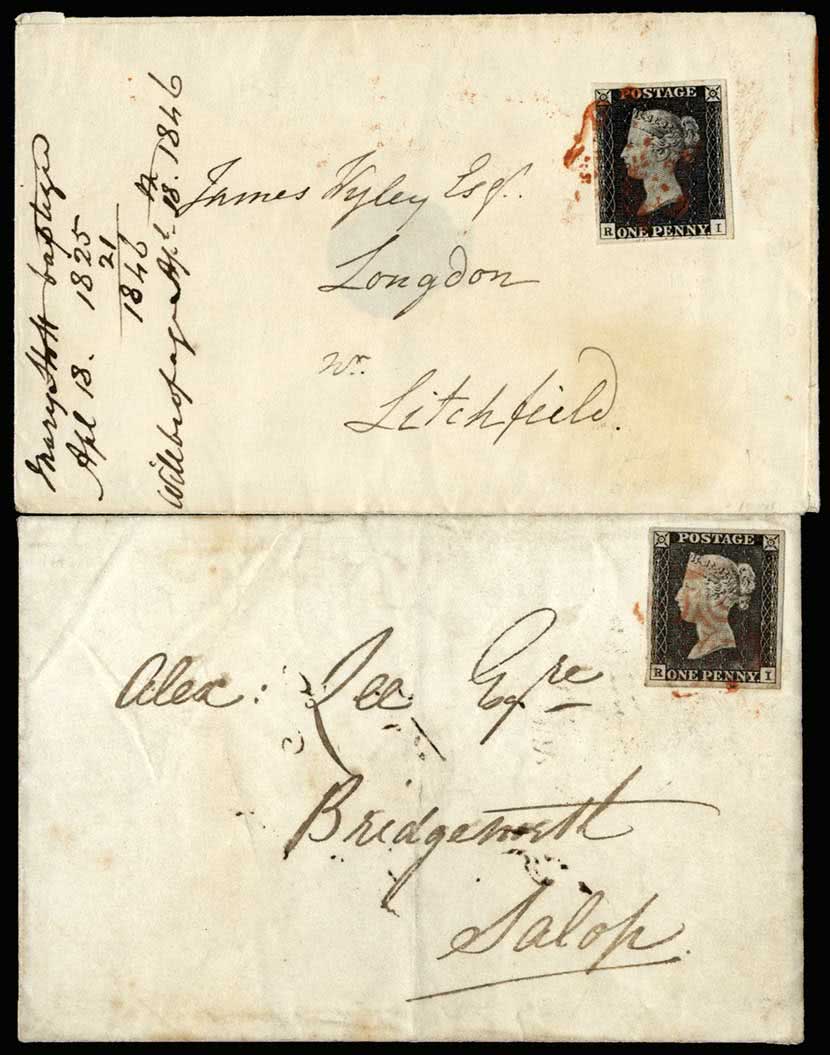 Mary Stott baptized
Apl 18. 1825
21
1846
Will be of age Apl. 18. 1846
James Wyley Esqr.
Longdon
nr.
Litchfield.
POSTAGE
ONE PENNY
R I
Alex: Lee Esqre
Bridgenorth
Salop
POSTAGE
ONE PENNY
R I